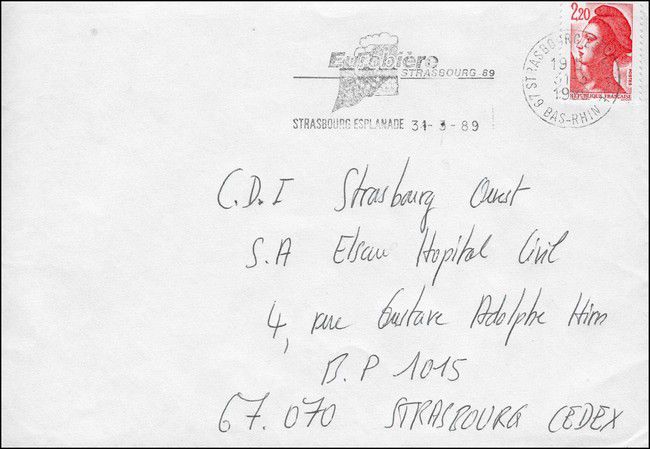 Eurobière
STRASBOURG 89
STRASBOURG ESPLANADE 31-3-89
2,20
RÉPUBLIQUE FRANÇAISE
67 STRASBOURG
BAS-RHIN
C.D.I Strasbourg Ouest
S.A Elsau Hopital Civil
4, rue Gustave Adolphe Hirn
B.P 1015
67.070 STRASBOURG CEDEX